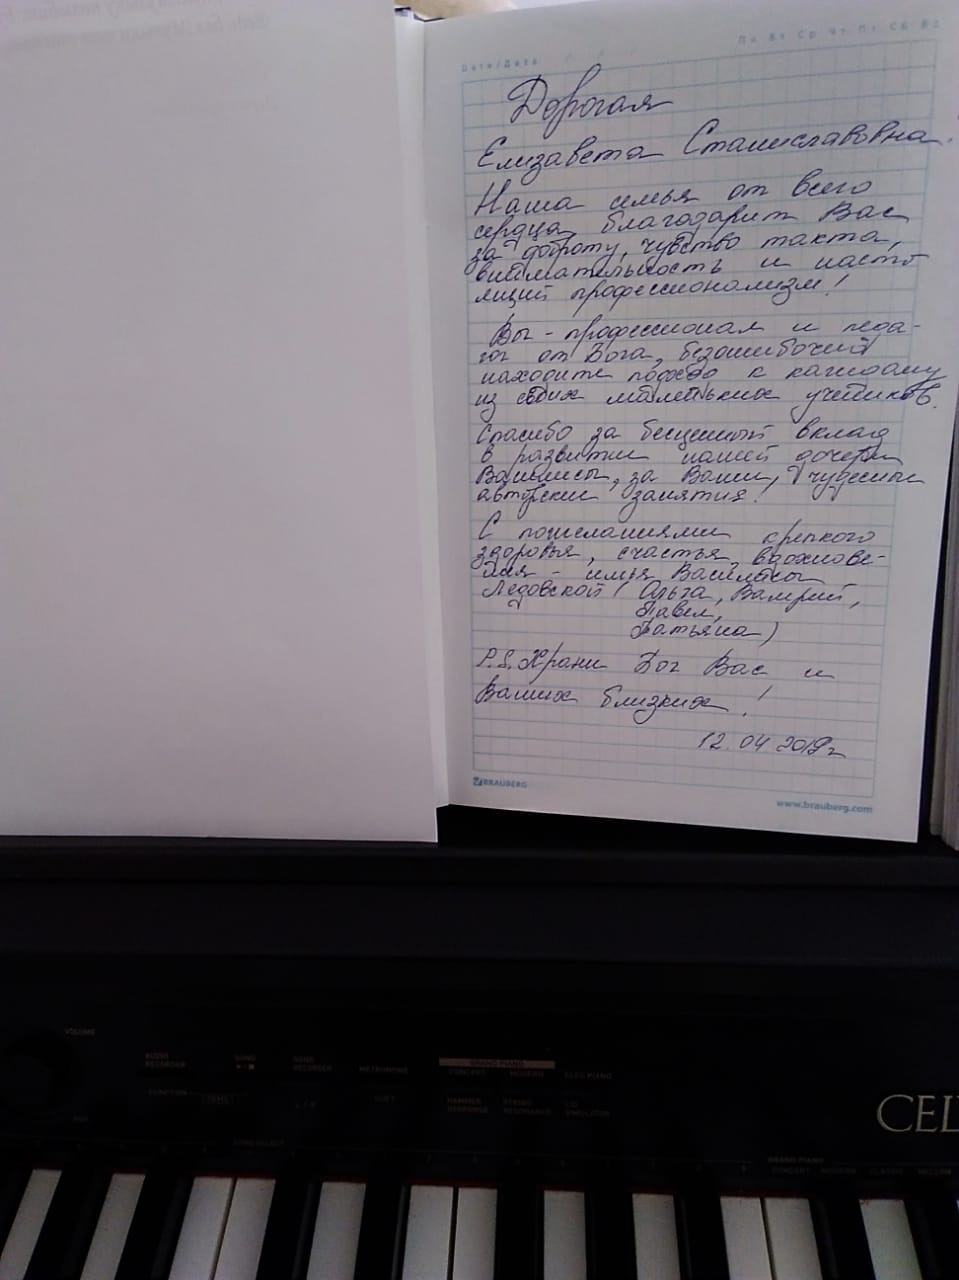 Дата/Date
Пн Вт Ср Чт Пт Сб Вс
Дорогая
Елизавета Станиславовна.
Наша семья от всего
сердца благодарит Вас
за доброту, чувство такта,
внимательность и насто
ящий профессионализм!
Вы - профессионал и педа-
гог от Бога, безошибочно
находите подход к каждому
из своих маленьких учеников.
Спасибо за бесценный вклад
в развитии нашей дочери
Василисы, за Ваши чудесные
авторские занятия!
С пожеланиями крепкого
здоровья, счастья, вдохнове-
ния - семья Василисы
Ледовской (Ольга, Валерий,
Павел,
Татьяна)
P.S. Храни Бог Вас и
Ваших близких!
12.04 2019г
BRAUBERG
www.brauberg.com
VOLUME
AUDIO RECORDER
SONG
SONG RECORDER
METRONOME
GRAND PIANO
CONCERT
MODERN
ELEC PIANO
FUNCTION
DUET
HAMMER RESPONSE
STRING RESONANCE
LID SIMULATOR
CEL
GRAND PIANO
CONCERT
MODERN
CLASSIC
MELLOW